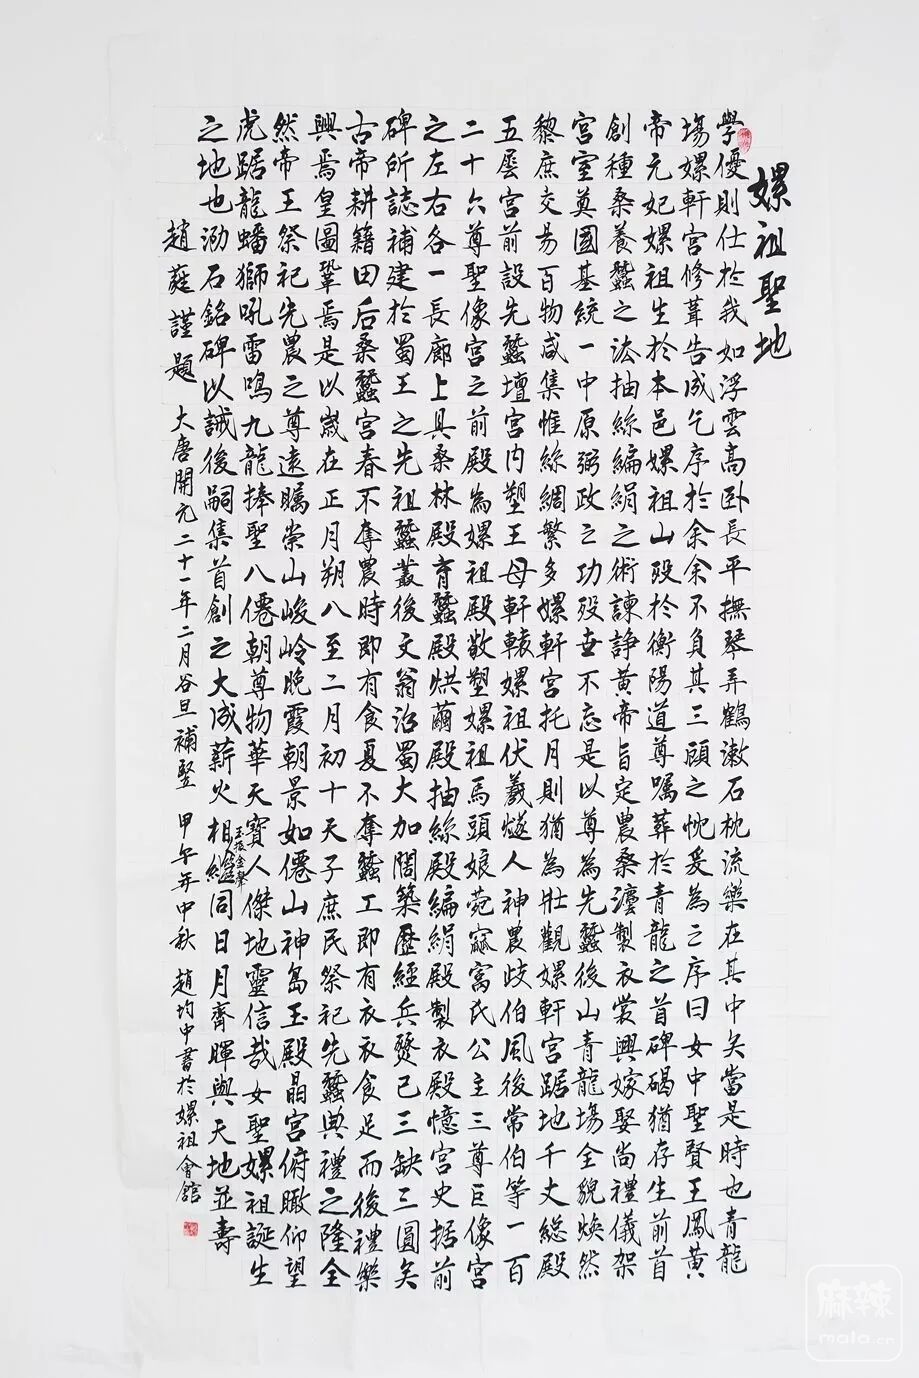 嫘祖聖地
學優則仕於我如浮雲高卧長平撫琴弄鶴漱石枕流樂在其中矣當是時也青龍
塲嫘軒宮修葺告成乞序於余余不負其三顧之忱爰為之序曰女中聖賢王鳳黃
帝元妃嫘祖生於本邑嫘祖山殁於衡陽道尊囑葬於青龍之首碑碣猶存生前首
創種桑養蠶之法抽絲編絹之術諫諍黃帝旨定農桑灋製衣裳興嫁娶尚禮儀架
宮室奠國基統一中原弼政之功殁世不忘是以尊為先蠶後山青龍塲全貌煥然
黎庶交易百物咸集惟絲綢繁多嫘軒宮托月則猶為壯觀嫘軒宮踞地千丈總殿
五層宮前設先蠶壇宮内塑王母軒轅嫘祖伏羲燧人神農岐伯風後常伯等一百
二十六尊聖像宮之前殿為嫘祖殿敬塑嫘祖馬頭娘菀窳寓氏公主三尊巨像宮
之左右各一長廊上具桑林殿育蠶殿烘繭殿抽絲殿編絹殿製衣殿憶宮史据前
碑所誌補建於蜀王之先祖蠶叢後文翁治蜀大加闊築歷經兵燹已三缺三圓矣
古帝耕籍田后桑蠶宮春不奪農時即有食夏不奪蠶工即有衣衣食足而後禮樂
興焉皇圖鞏焉是以嵗在正月朔八至二月初十天子庶民祭祀先蠶典禮之隆全
然帝王祭祀先農之尊遠矚崇山峻岭晚霞朝景如僊山神島玉殿晶宮俯瞰仰望
虎踞龍蟠獅吼雷鳴九龍捧聖八僊朝尊物華天寳人傑地靈信哉女聖嫘祖誕生
之地也泐石銘碑以誡後嗣集首創之大成薪火相繼玉振金聲同日月齊暉與天地並壽
趙蕤謹題 大唐開元二十一年二月谷旦補竪 甲午年中秋 趙均中書於嫘祖會舘
麻辣
mala.cn